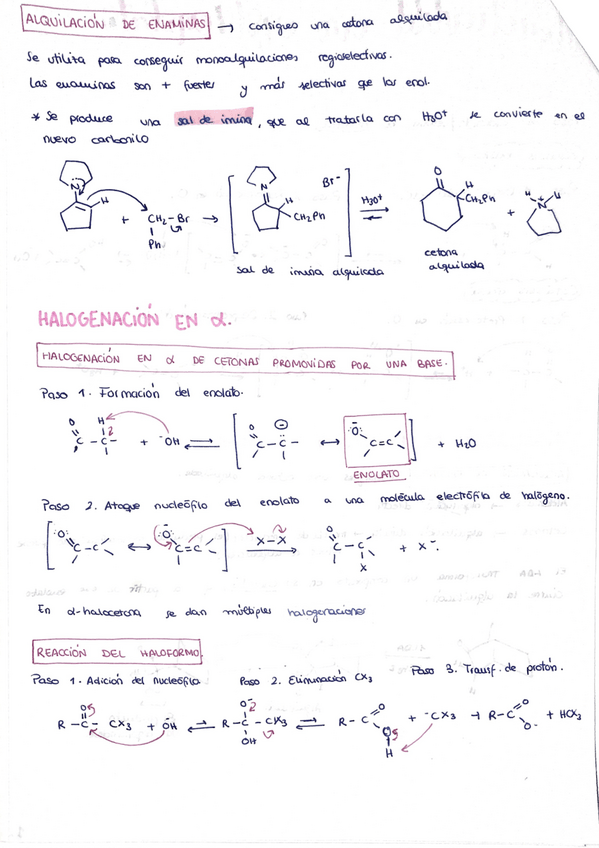 ALQUILACIÓN DE ENAMINAS → consigues una cetona alquilada
Se utiliza para conseguir monoalquilaciones regioselectivas.
Las enaminas son + fuertes y más selectivas que los enol.
* Se produce una sal de imina, que al tratarla con H3O+ se convierte en el
nuevo carbonilo
N H + CH2-Br → N H CH2Ph Br- H3O+ ⇌ O H CH2Ph + H N+ H
Ph
sal de imina alquilada
cetona
alquilada
HALOGENACIÓN EN α.
HALOGENACIÓN EN α DE CETONAS PROMOVIDAS POR UNA BASE.
Paso 1. Formación del enolato.
O H C-C- + -OH ⇌ [ O C-C- ⊖ ↔ :O: C=C ] + H2O
ENOLATO
Paso 2. Ataque nucleófilo del enolato a una molécula electrófila de halógeno.
[ :O: C-C ↔ :O: C=C ] X-X → O C-C X + X-:
En α-halocetona se dan múltiples halogenaciones
REACCIÓN DEL HALOFORMO.
Paso 1. Adición del nucleófilo Paso 2. Eliminación CX3 Paso 3. Transf. de protón.
R-C(O)-CX3 + -OH ⇌ R-C(O-)(OH)-CX3 ⇌ R-C(O)O-H + -CX3 → R-C(O)O- + HCX3